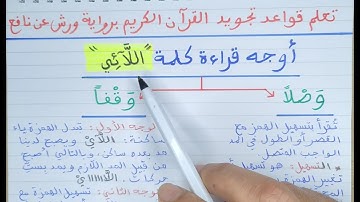 تعلم قواعد تجويد القرآن الكريم برواية ورش عن نافع
أوجه قراءة كلمة "اللَّآئِي"
وَصْلاً
وَقْفاً
تقرأ بتسهيل الهمز مع
القصر أو الطول في المد
الواجب المتصل
التسهيل: هو تسهيل أو
تغيير الهمزة
الوجه الأول: تبدل الهمزة ياء
ساكنة: اللَّآيْ ويصبح لدينا
مد بعده ساكن، وبالتالي أصبح
من قبيل المد اللازم ويمد بست
حركات.
الوجه الثاني: تسهيل الهمزة مع